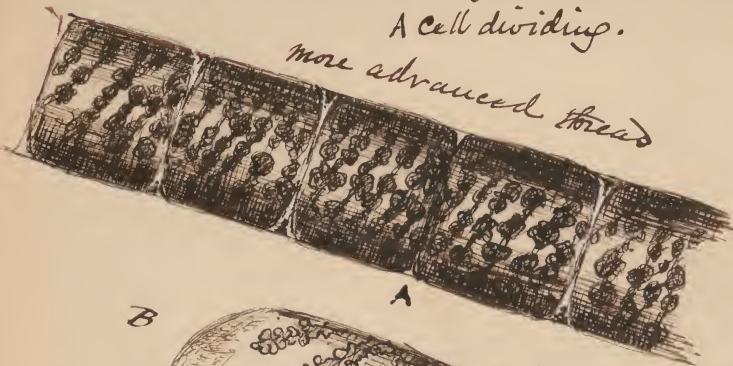 A cell dividing.
more advanced thread
A
B